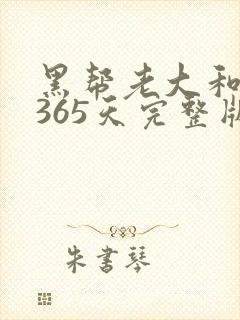 黑帮老大和
365天完整版
朱書琴